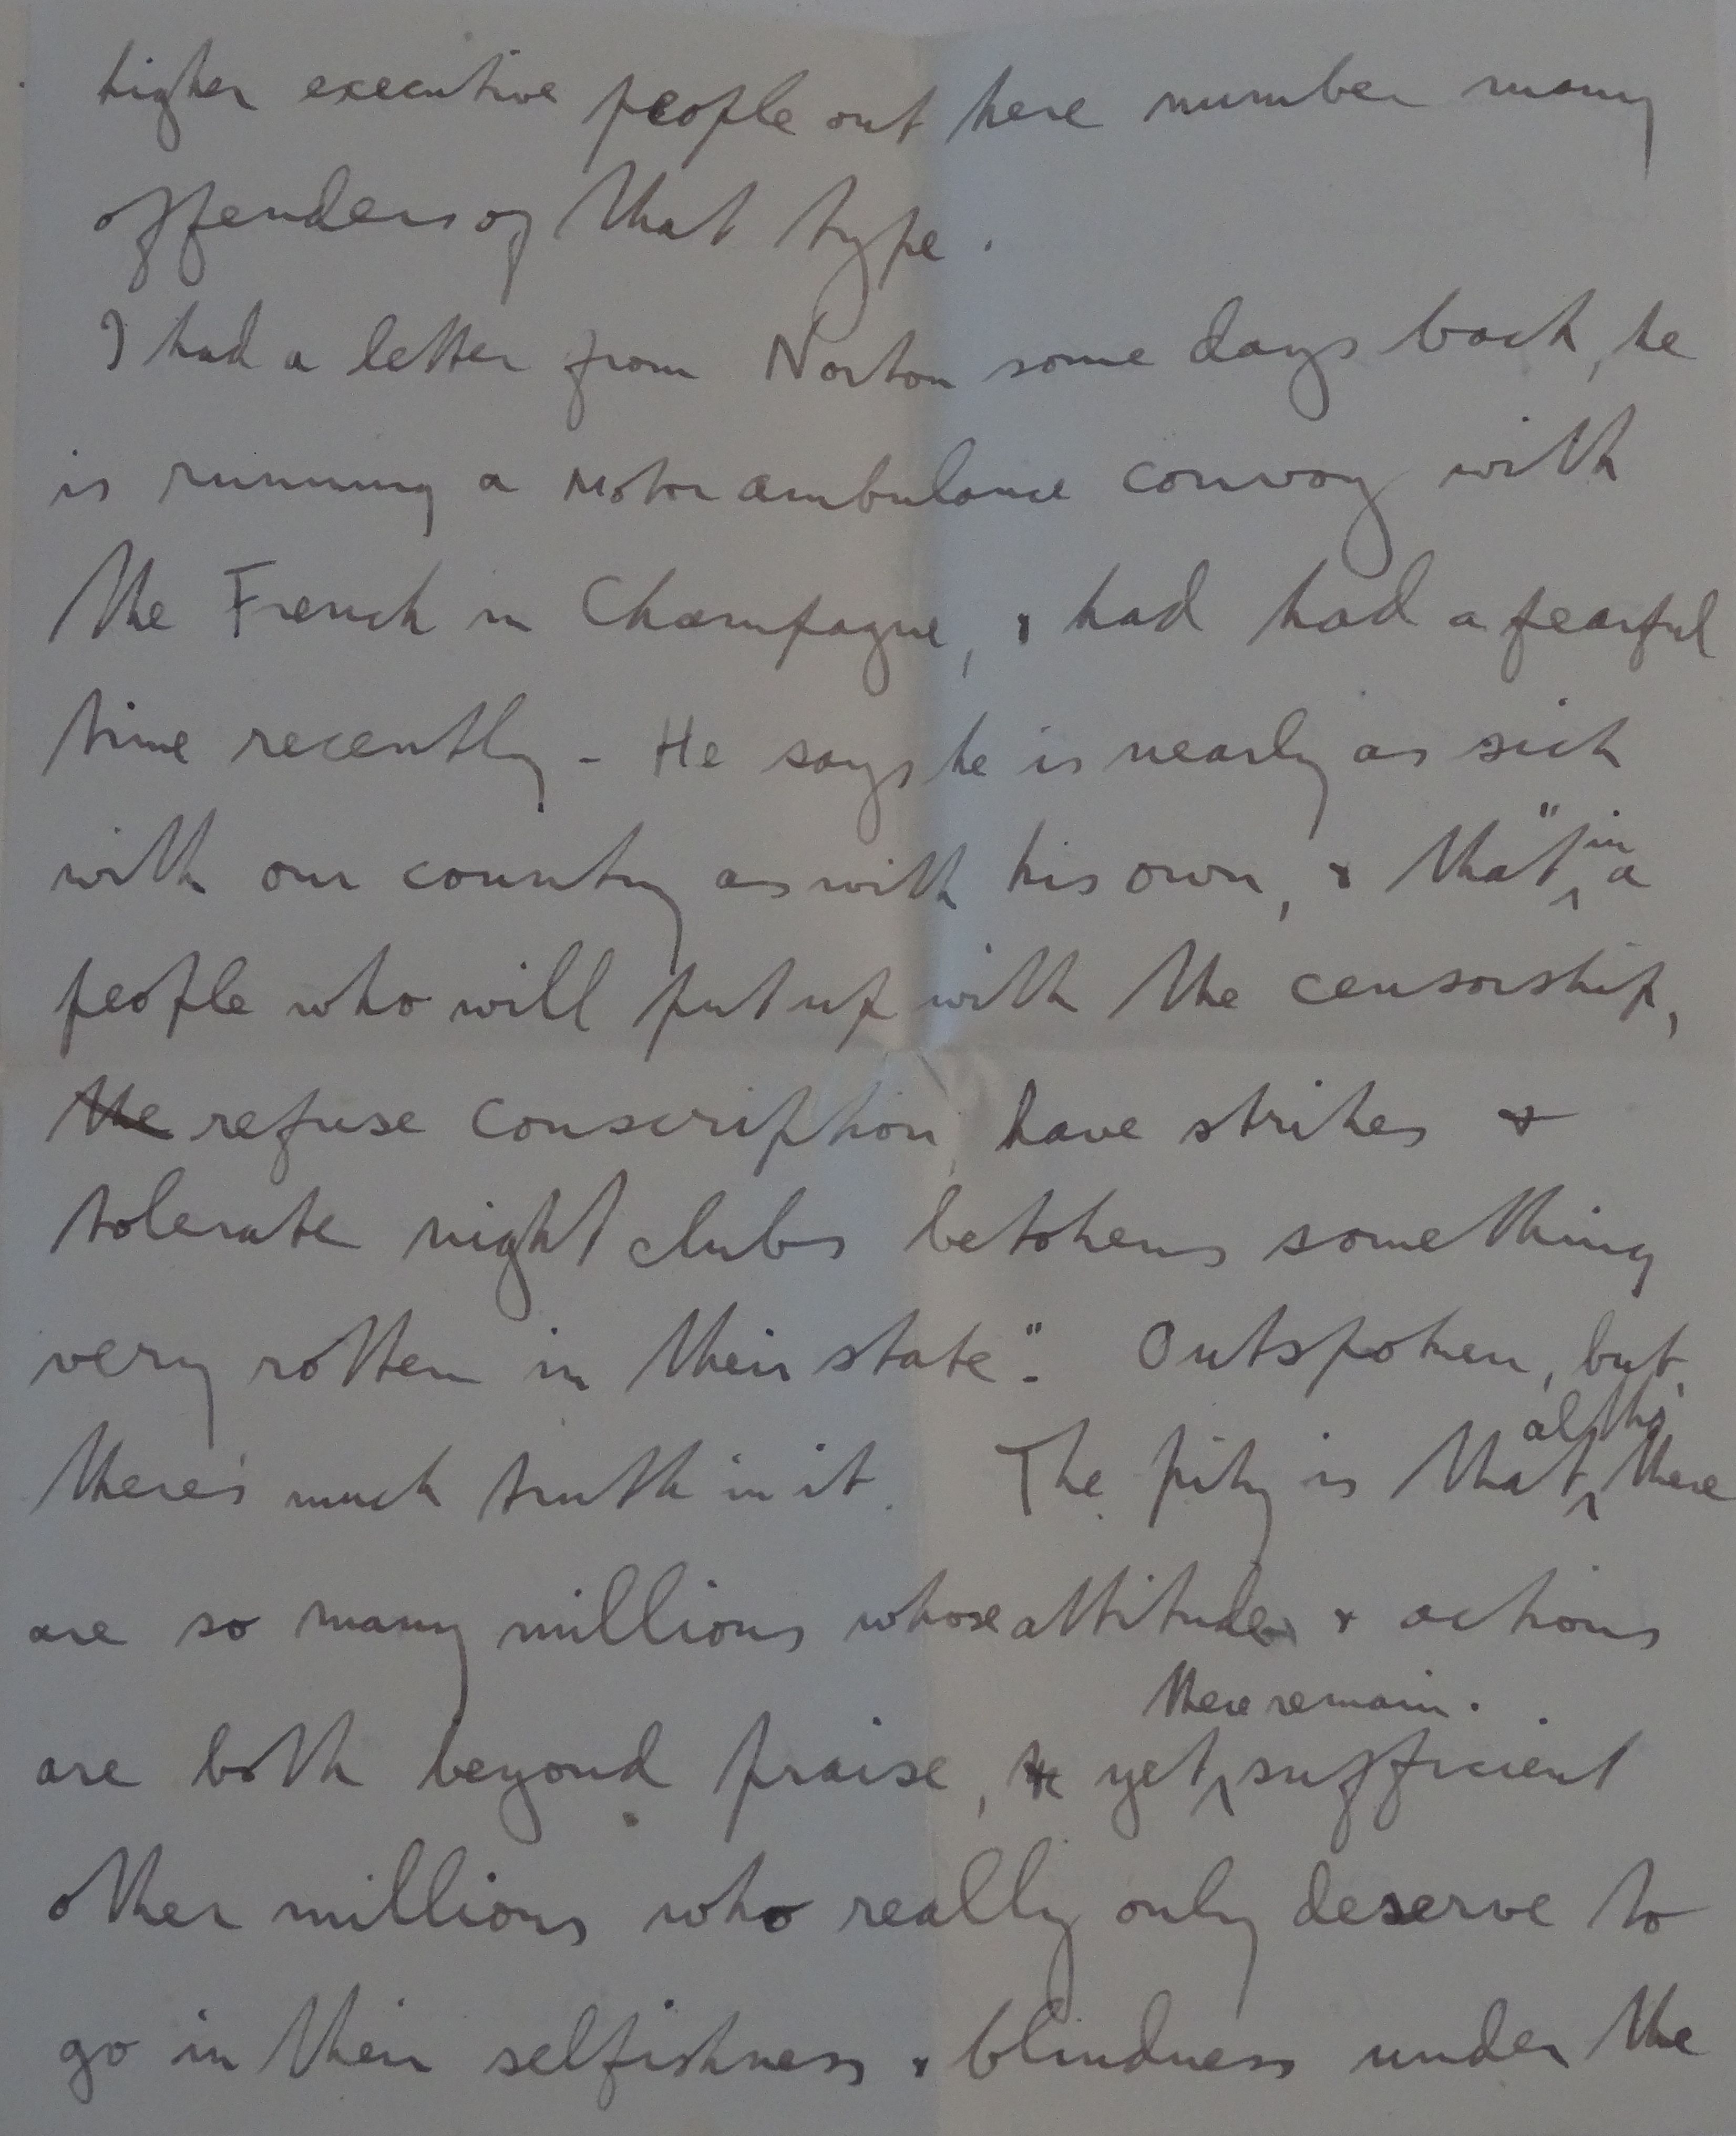 higher executive people out here number many
offenders of that type.
I had a letter from Norton some days back, he
is running a motor ambulance convoy with
the French in Champagne, & had had a fearful
time recently - He says he is nearly as sick
with our country as with his own, & that "in a
people who will put up with the censorship,
the refuse conscription, have strikes &
tolerate night clubs betokens something
very rotten in their state". Outspoken, but,
there's much truth in it. The pity is that altho' there
are so many millions whose attitude & actions
are both beyond praise, yet there remain sufficient
other millions who really only deserve to
go in their selfishness & blindness under the